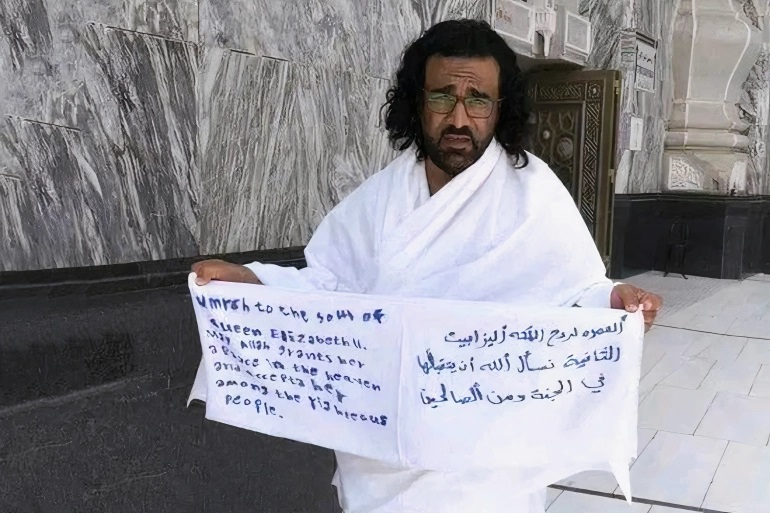 Umrah to the soul of
Queen Elizabeth II.
May Allah grants her
a place in the heaven
and accepts her
among the righteous
people.
العمره لروح الملكه أليزابيت
الثانية نسأل الله أن يتقبلها
في الجنة ومن الصالحين